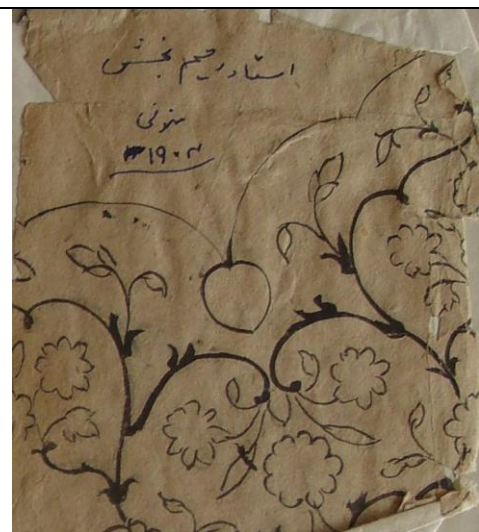 استاد رحیم بخش
متوفی
۱۹۰۲